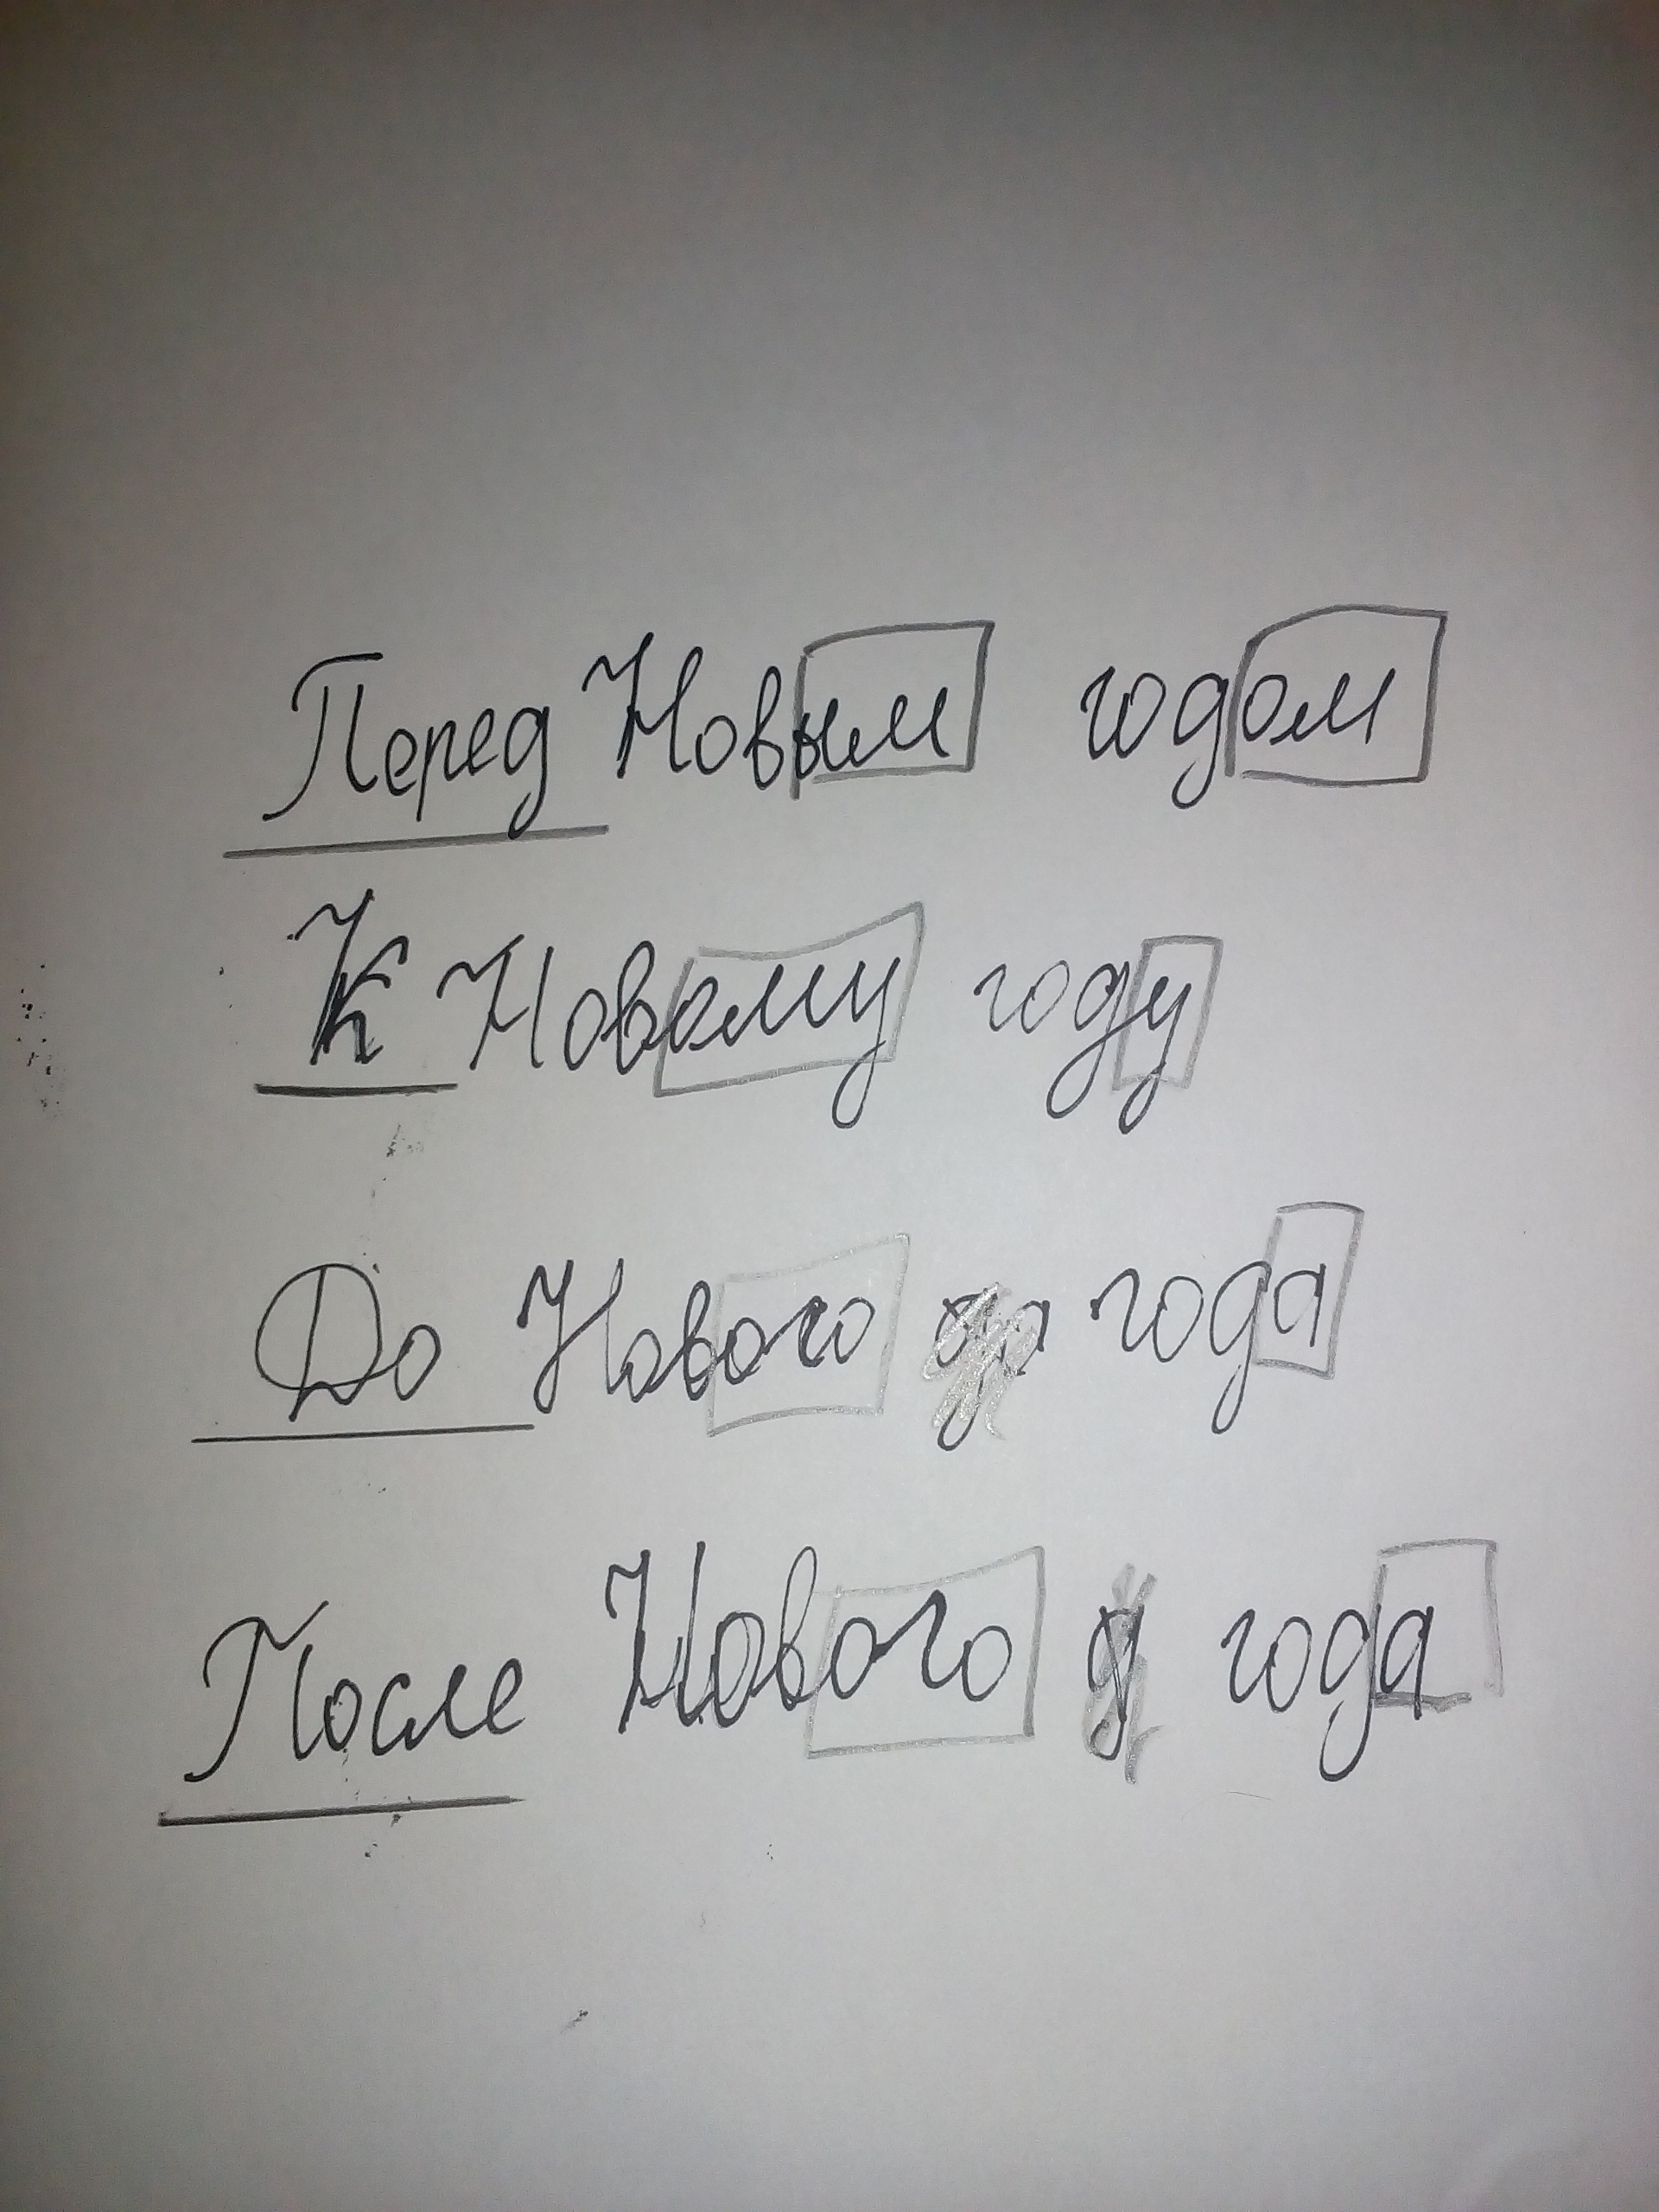 Перед Новым годом
К Новому году
До Нового года
После Нового года